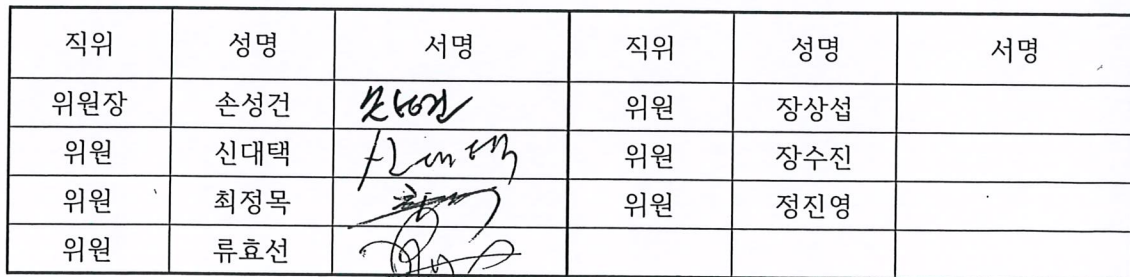 직위 성명 서명 직위 성명 서명
위원장 손성건 손성건 위원 장상섭
위원 신대택 신대택 위원 장수진
위원 최정목 위원 정진영
위원 류효선